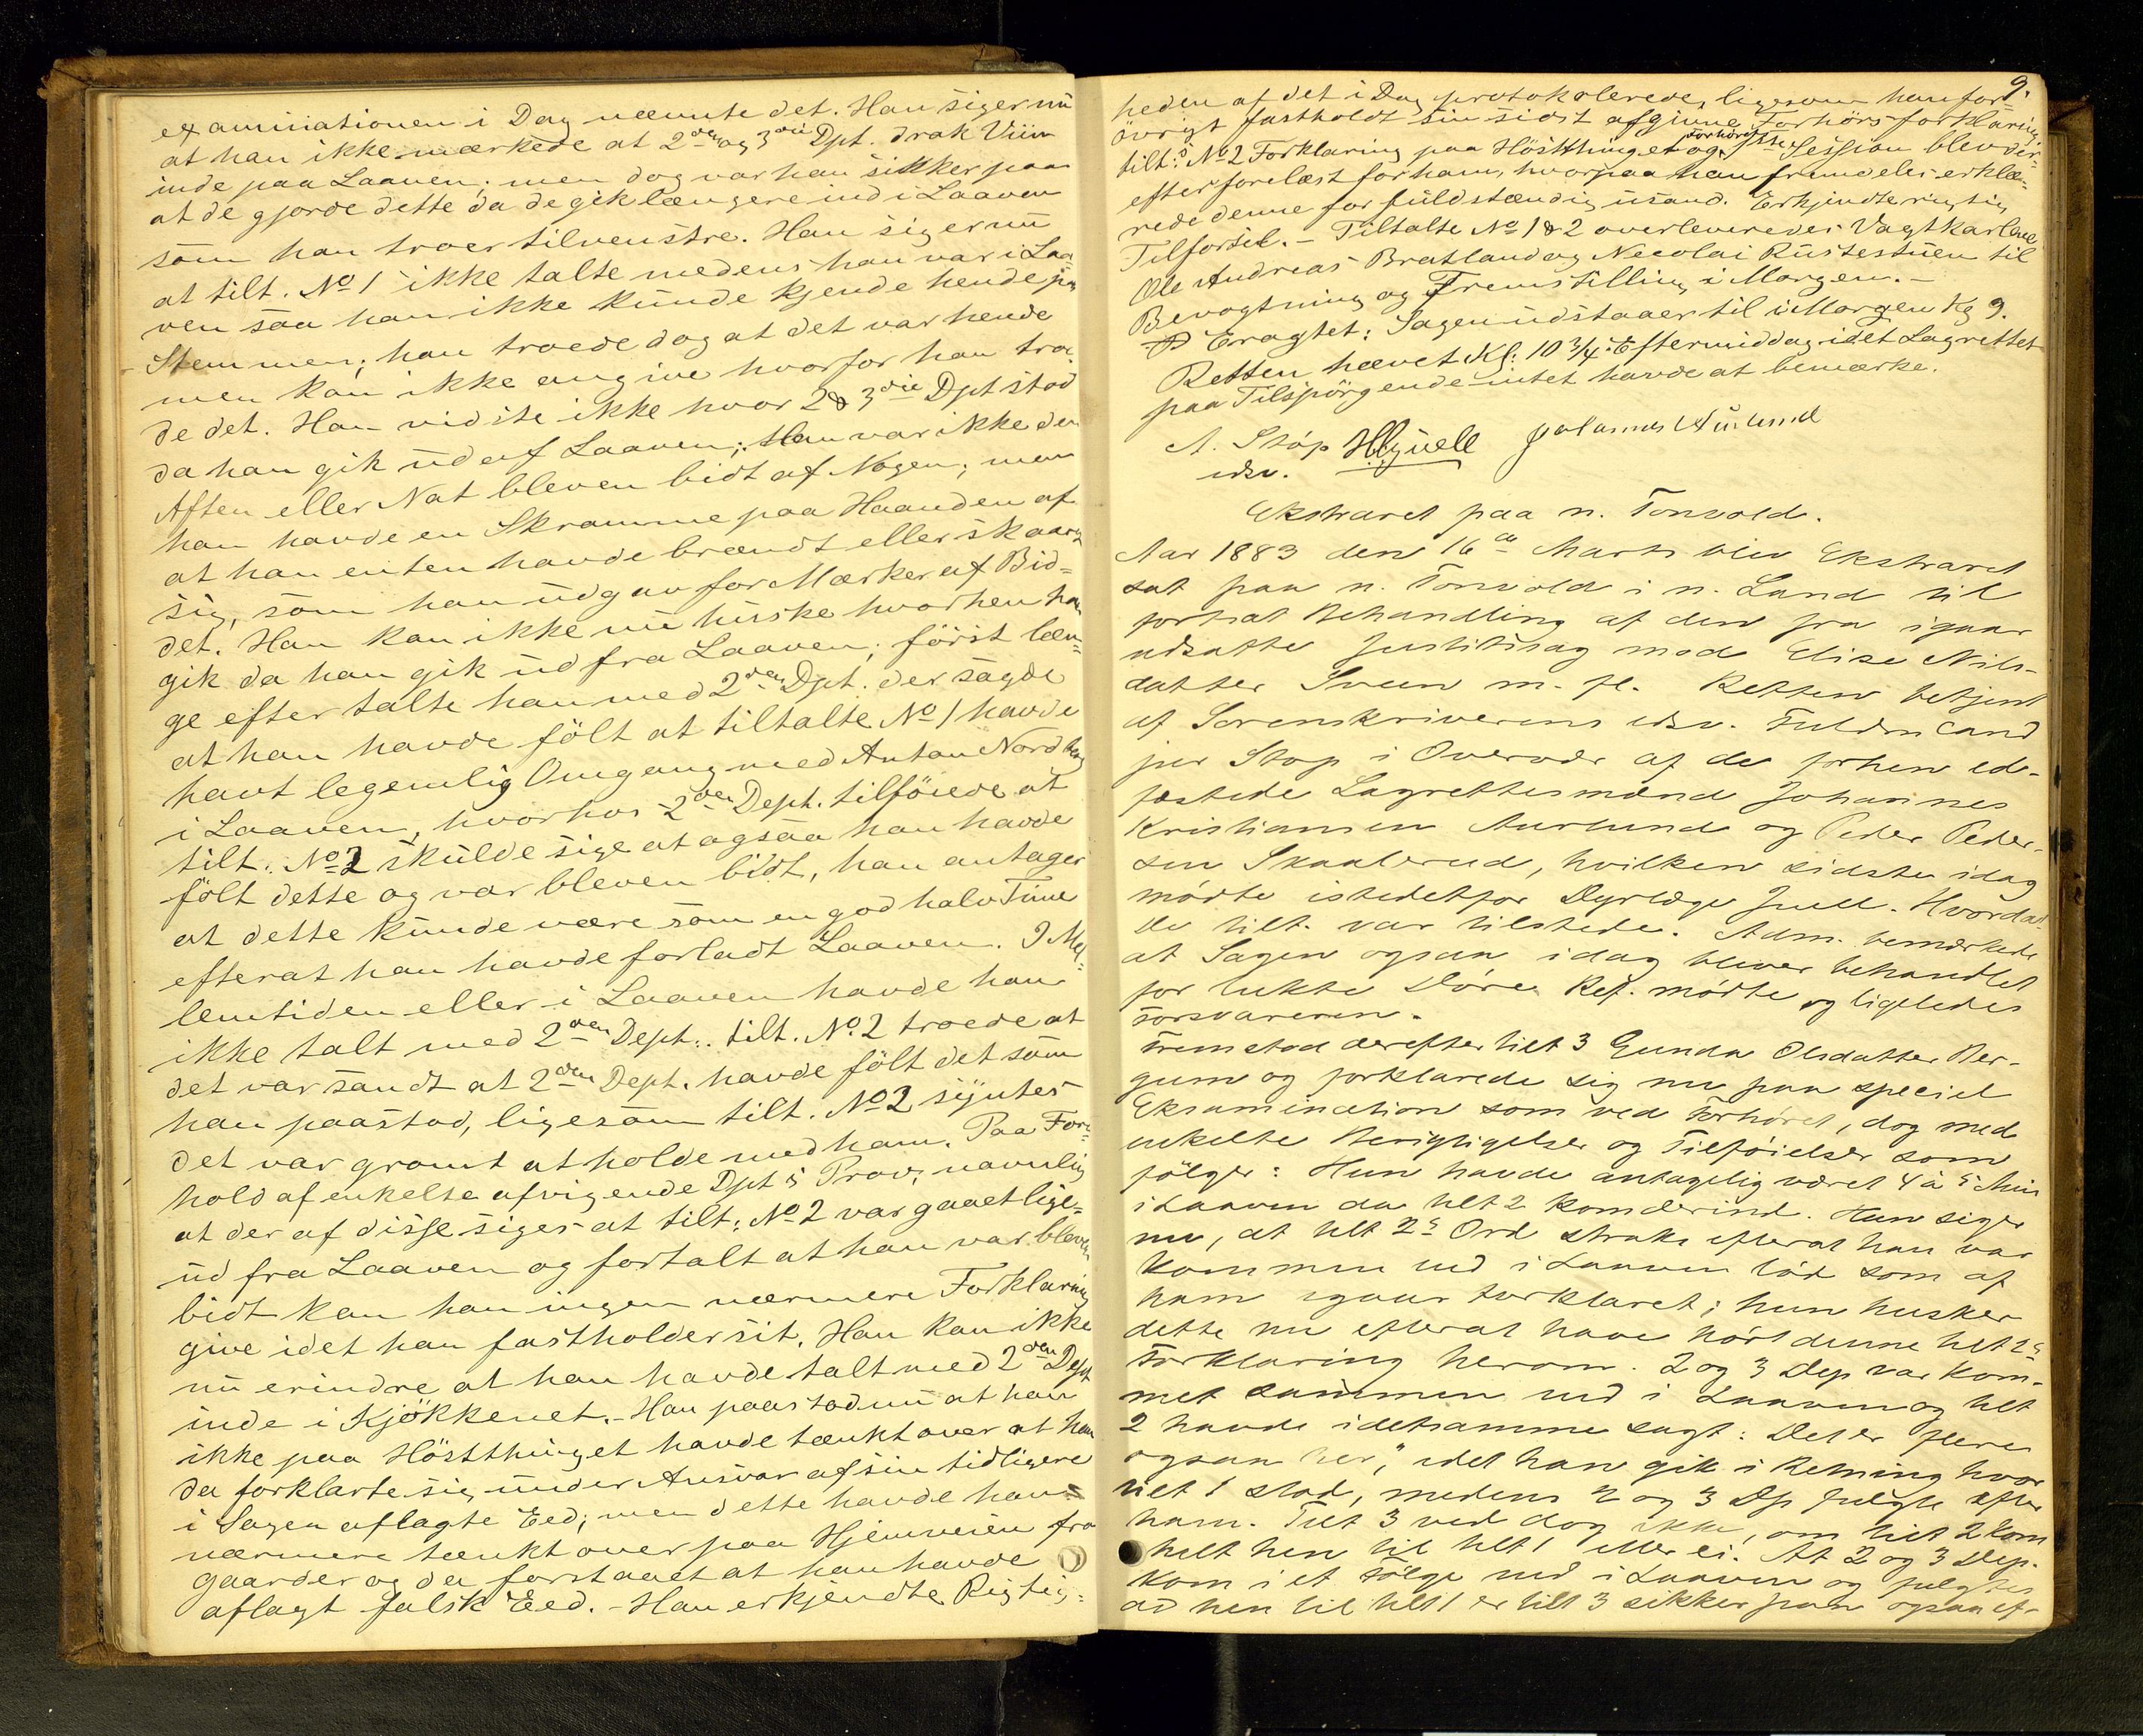 examinationen i Dag nævnte det. Han siger nu
at han ikke mærkede at 2den og 3die Dpt. drak Viin
inde paa Laaven; men dog var han sikker paa
at de gjorde dette da de gik længere ind i Laaven
som han troer tilvenstre. Han siger nu
at tilt. No 1 ikke talte medens han var i Laa-
ven saa han ikke kunde kjende hende paa
Stemmen; han troede dog at det var hende
men kan ikke angive hvorfor han tro-
de det. Han vidste ikke hvor 2 & 3die Dpt stod
da han gik ud af Laaven; Han var ikke den
Aften eller Nat bleven bidt af Nogen; men
han havde en Skramme paa Haanden af
at han enten havde brændt eller skaaret
sig, som han udgav for Mærker af Bid-
det. Han kan ikke nu huske hvorhen han
gik da han gik ud fra Laaven; først læn-
ge efter talte han med 2den Dpt. der sagde
at han havde følt at tiltalte No 1 havde
havt legemlig Omgang med Anton Nordberg
i Laaven, hvorhos 2den Dept. tilføiede at
tilt. No 2 skulde sige at ogsaa han havde
følt dette og var bleven bidt, han antager
at dette kunde være som en god halv Time
efterat han havde forladt Laaven. I Mel-
lemtiden eller i Laaven havde han
ikke talt med 2den Dept.. tilt. No. 2 troede at
det var sandt at 2den Dept. havde følt det som
han paastod, ligesom tilt. No 2 syntes
det var gromt at holde med ham. Paa Fore-
hold af enkelte afvigende Dpt's Prov, navnlig
at der af disse siges at tilt. No 2 var gaaet lige
ud fra Laaven og fortalt at han var bleven
bidt kan han ingen nærmere Forklaring
give idet han fastholder sit. Han kan ikke
nu erindre at han havde talt med 2den Dept
inde i Kjøkkenet. - Han paastod nu at han
ikke paa Høstthinget havde tænkt over at han
da forklarte sig under Ansvar af sin tidligere
i Sagen aflagte Eed; men dette havde han
nærmere tænkt over paa Hjemveien fra
Gaarder og da forstaaet at han havde
aflagt falsk Eed. - Han erkjendte Rigtig-
9.
heden af det i Dag protokolerede, ligesom han for-
øvrigt fastholdt sin sidst afgivne Forhørsforklaring
tilt.s No 2 Forklaring paa Høstthinget og Forhørets Session blev der-
efter forelæst for ham, hvorpaa han fremdeles erklæ-
rede denne for fuldstændig usand. Erkjendte rigtig
Tilførsel. - Tiltalte No 1 & 2 overleveredes Vagtkarlene
Ole Andreas Bratland og Neeolai Rustestuen til
Bevogtning og Fremstilling i Morgen. -
Eragtet: Sagen udstaaer til i Morgen Kl 9.
Retten hævet Kl: 10 3/4 Eftermiddag idet Lagrettet
paa Tilspørgende intet havde at bemærke.
A. Stöp HHjuell Johannes Aurlund
edsv.
Ekstraret paa n. Tonvold.
Aar 1883 den 16de Marts blev Ekstraret
sat paa n. Tonvold i n. Land til
fortsat Behandling af den fra igaar
udsatte Justitssag mod Elise Nils-
datter Sveen m. fl. Retten betjent
af Sorenskriverens edsv. Fuldm Cand
jur Stop i Overvær af de forhen ed-
fæstede Lagrettesmænd Johannes
Kristiansen Aurlund og Peder Peder-
sen Skaalerud, hvilken sidste idag
mødte istedetfor Dyrlæge Juell. Hvorda
de tilt. var tilstede. Adm. bemærkede
at Sagen ogsaa idag bliver behandlet
for lukte Døre. Ref. mødte og ligeledes
Forsvareren.
Fremstod derefter tilt 3 Gunda Olsdatter Ber-
gum og forklarede sig nu paa speciel
Eksamination som ved Forhøret, dog med
enkelte Berigtigelser og Tilføielser som
følger: Hun havde antagelig været 4 à 5 Min
i Laaven da tilt 2 kom derind. Hun siger
nu, at tilt 2s Ord straks efterat han var
kommen ind i Laaven lød som af
ham igaar forklaret; hun husker
dette nu efterat have hørt denne tilt 2s
Forklaring herom. 2 og 3 Dep var kom-
met sammen ind i Laaven og tilt
2 havde idetsamme sagt: Det er flere
ogsaa her," idet han gik i Retning hvor
tilt 1 stod, medens 2 og 3 Dp fulgte efter
ham. Tilt 3 ved dog ikke, om tilt 2 kom
helt hen til tilt 1 eller ei. At 2 og 3 Dep.
kom i et Følge ind i Laaven og fulgtes
ad hen til tilt 1 er tilt 3 sikker paa ogsaa ef-